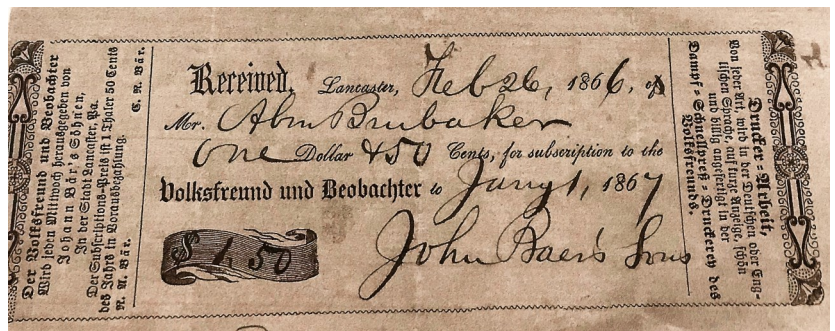 Der Volksfreund und Beobachter
Wird jeden Mittwoch herausgegeben von
Johann Bär's Söhnen,
In der Stadt Lancaster, Pa.
Der Subscriptions-Preis ist 1 Thaler 50 Cents
des Jahrs in Vorausbezahlung.
R. R. Bär. C. R. Bär.
Received, Lancaster, Feb 26, 1866, of
Mr. Abm Brubaker
One Dollar & 50 Cents, for subscription to the
Volksfreund und Beobachter to Jany 1, 1867
$ 1,50
John Baer's Sons
Drucker-Arbeit,
Von jeder Art, wird in der Deutschen oder Eng-
lischen Sprache, auf kurze Anzeige, schön
und billig angefertigt in der
Dampf-Schnellpreß-Druckerey des
Volksfreunds.